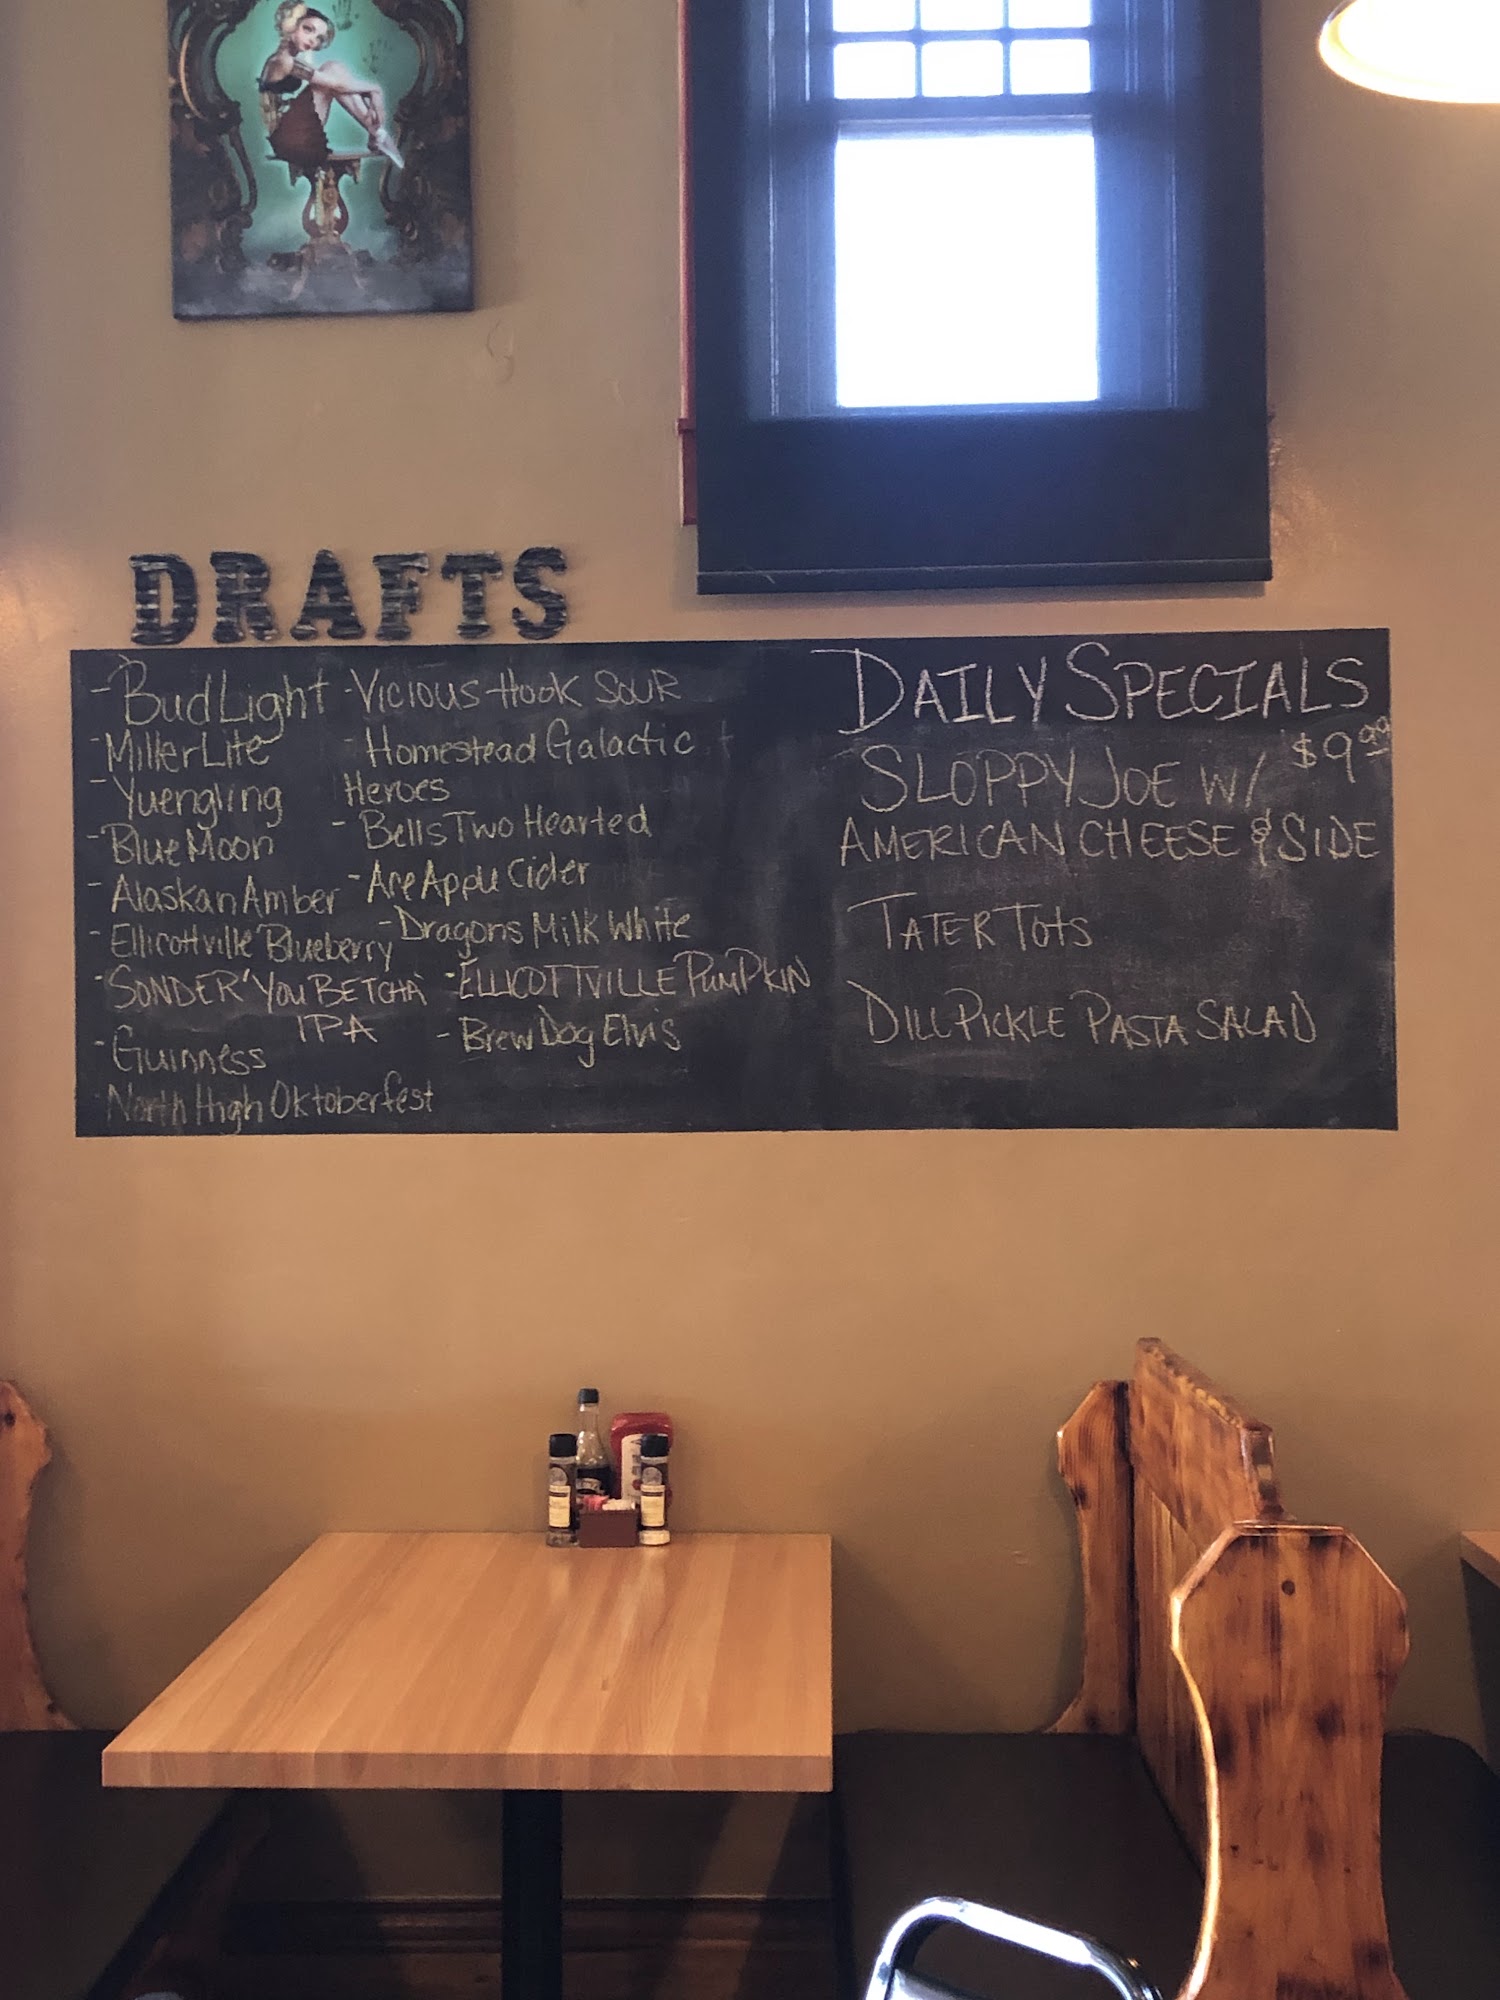 DRAFTS
- Bud Light
- Miller Lite
- Yuengling
- Blue Moon
- Alaskan Amber
- Ellicottville Blueberry
- SONDER YOU BETCHA
IPA
- Guinness
- North High Oktoberfest
- VICIOUS HOOK SOUR
- Homestead Galactic
Heroes
- Bells Two Hearted
- Ace Apple Cider
- Dragons Milk White
- ELLICOTTVILLE PUMPKIN
- Brew Dog Elvis
DAILY SPECIALS
SLOPPY JOE W/ $9.99
AMERICAN CHEESE & SIDE
TATER TOTS
DILL PICKLE PASTA SALAD